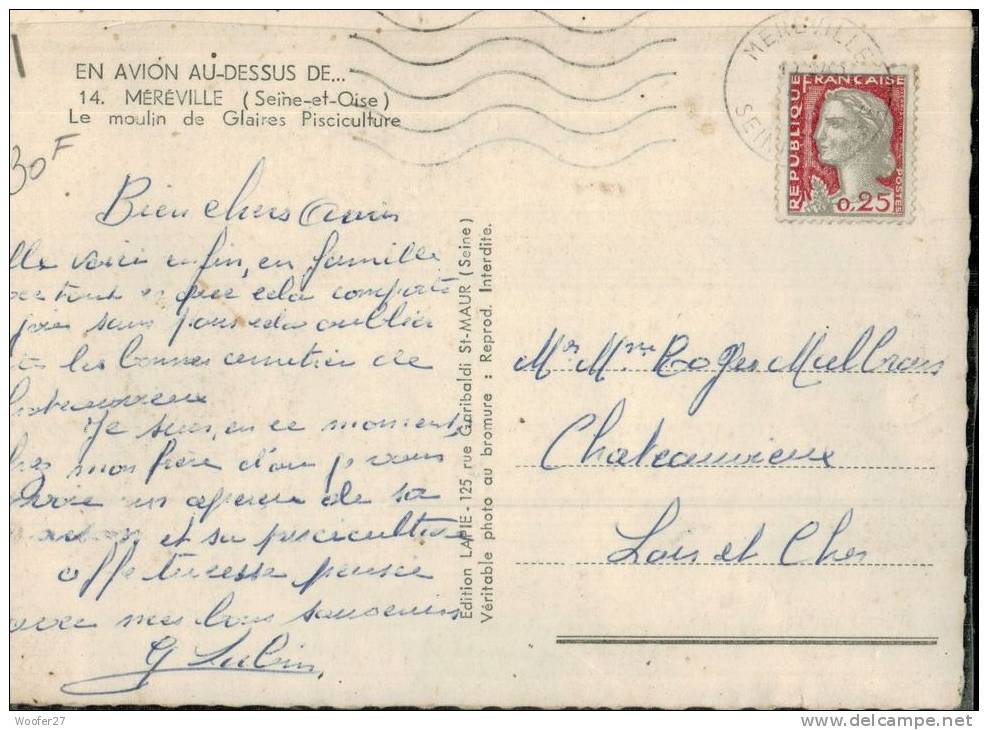 EN AVION AU-DESSUS DE...
14. MÉRÉVILLE (Seine-et-Oise)
Le moulin de Glaires Pisciculture
30F
Bien chers Amis
voici enfin, en famille
tout ce que cela comporte
sans pour cela oublier
les bonnes de
Je suis, en ce moment,
mon frère d'où je vous
un aperçu de sa
et sa pisciculture
affectueuse pensée
avec mes bons souvenirs
G Lubin
Edition LAPIE - 125, rue Garibaldi St-MAUR (Seine)
Véritable photo au bromure : Reprod. Interdite.
MEREVILLE
SEIN
REPUBLIQUE
FRANÇAISE
POSTES
0,25
Mr Mme Roger
Chateauvieux
Loir et Cher
Woofer27
www.delcampe.net